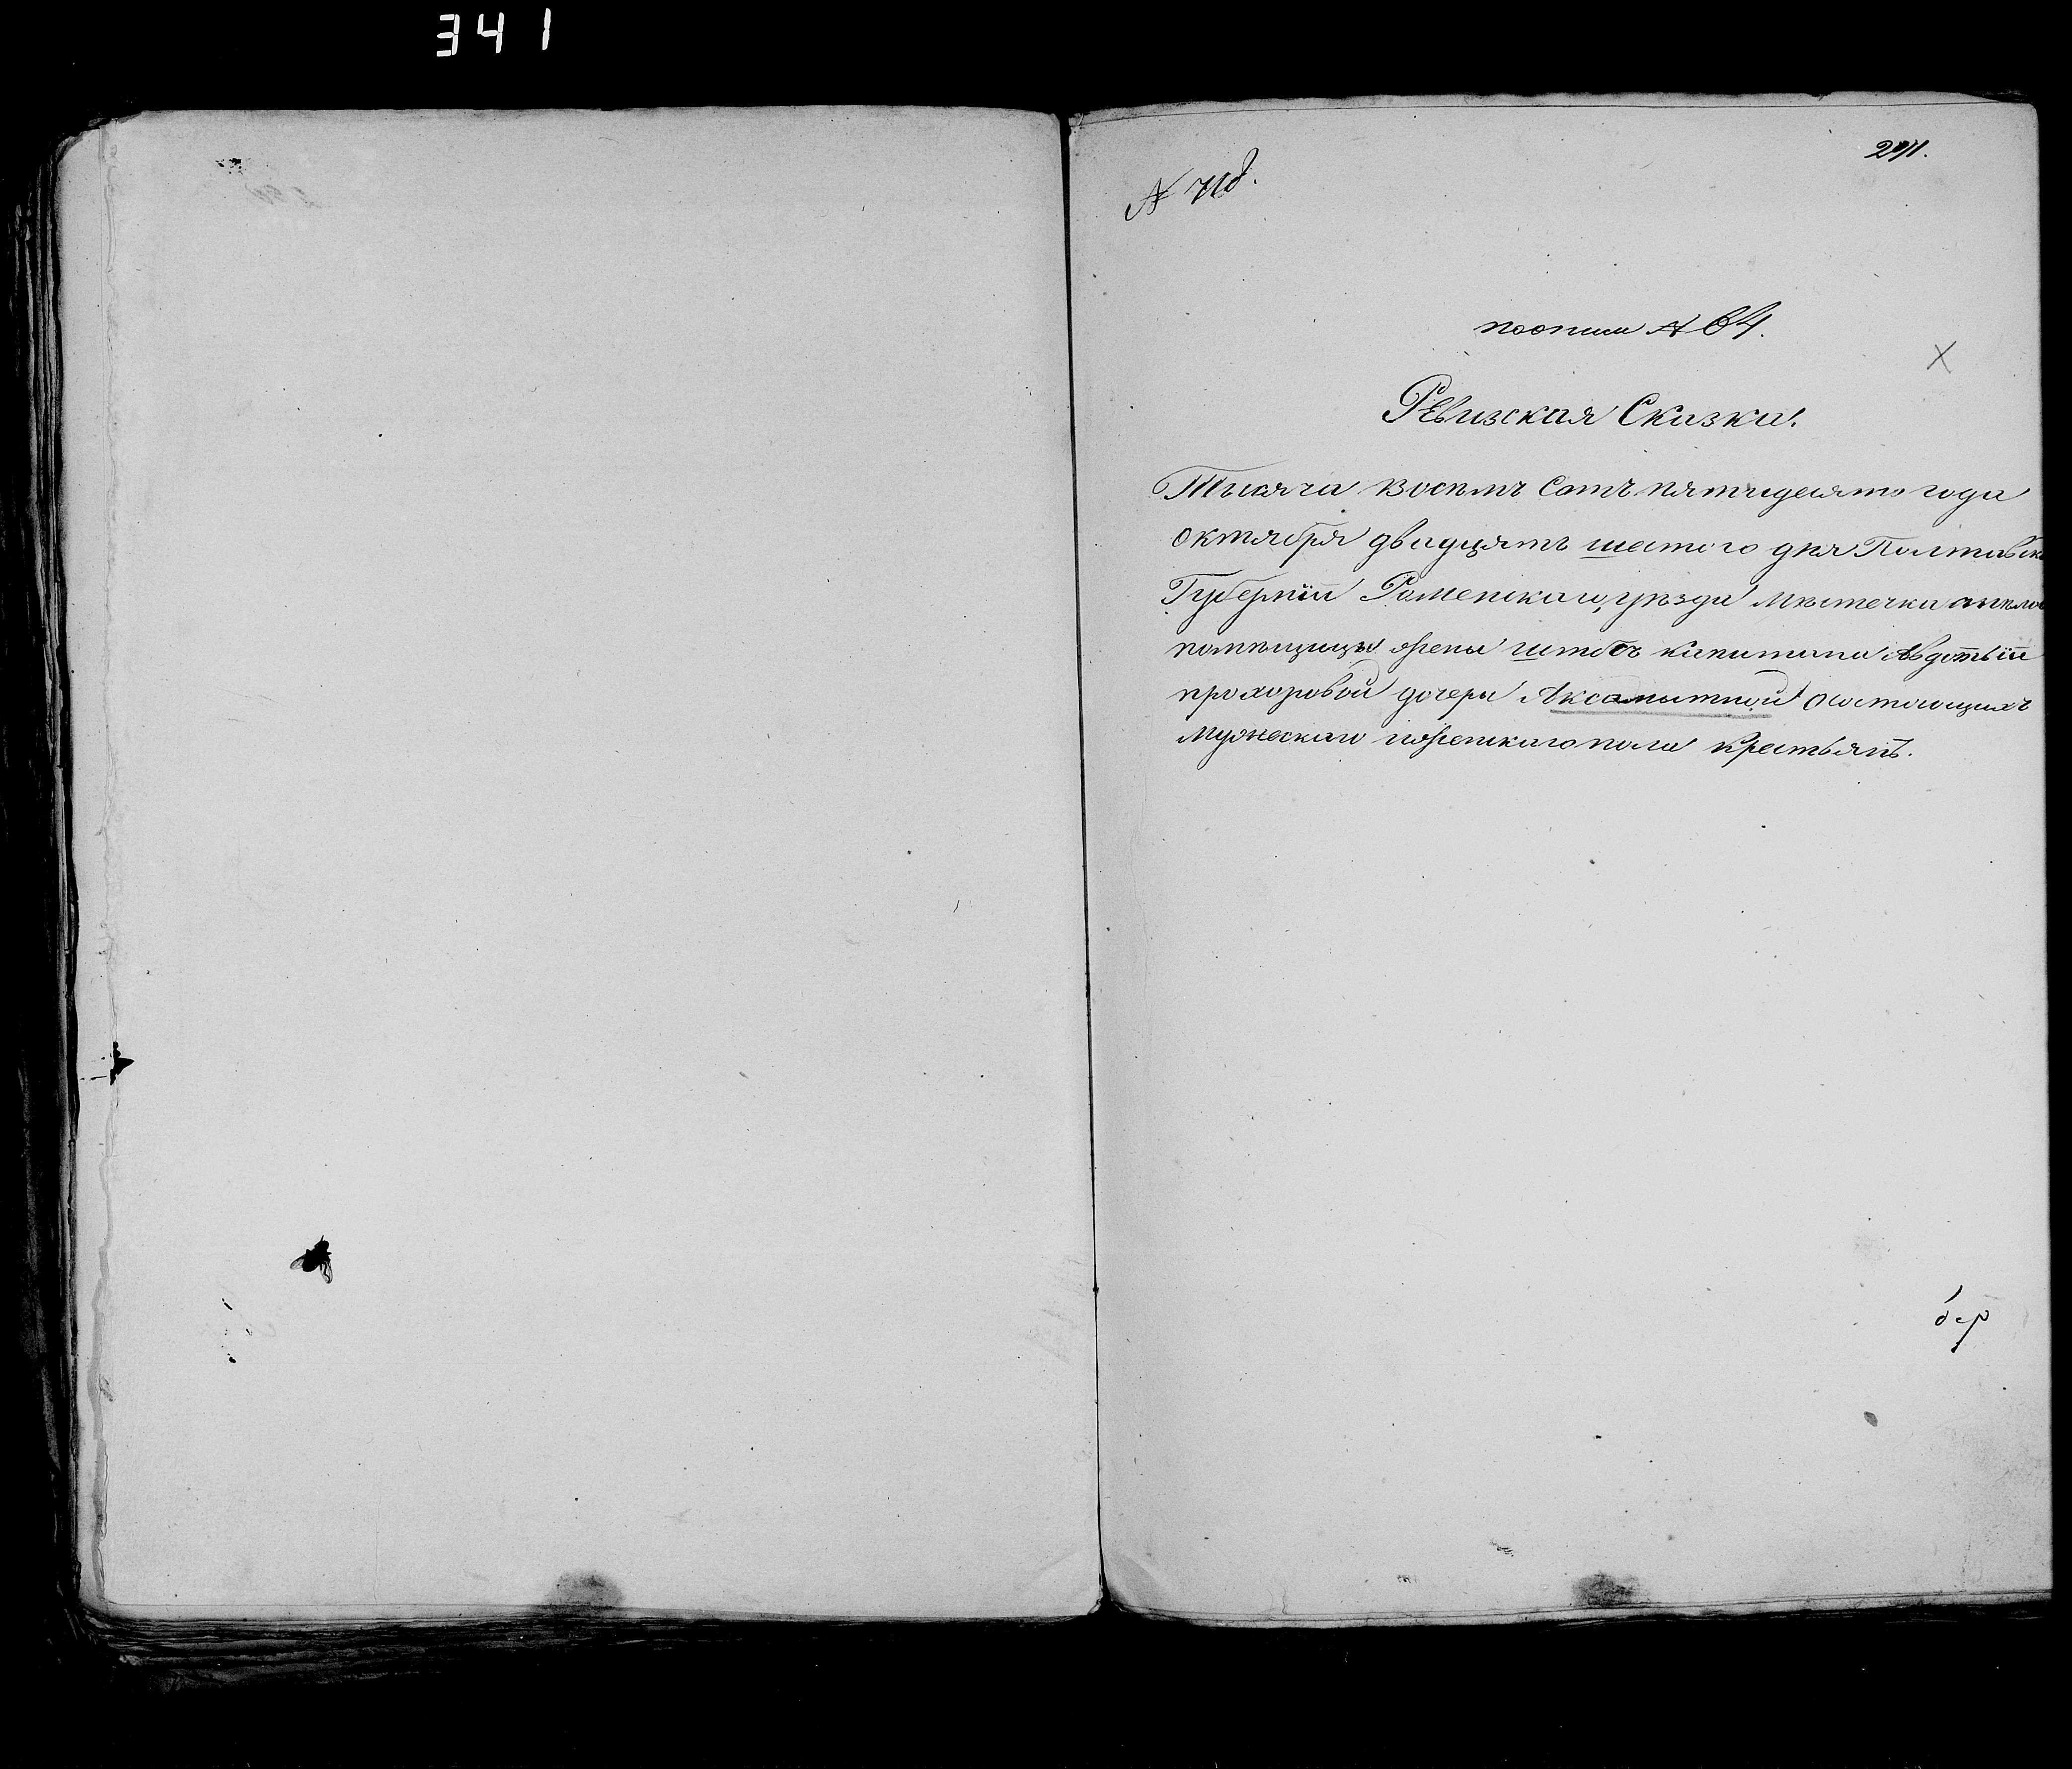 341
291.
№ 718.
по описи № 64.
Ревизская Сказка.
Тысяча восемь Сотъ пятидесято года
октября двадцять шестого дня Полтавск
Губерніи Роменскаго уѣзда мѣстечка
помѣщицы жены штабсъ капитана Авдотьіи
прохоровой дочери Аксамытной о состоящихъ
мужескаго и женскаго пола крестьянъ.